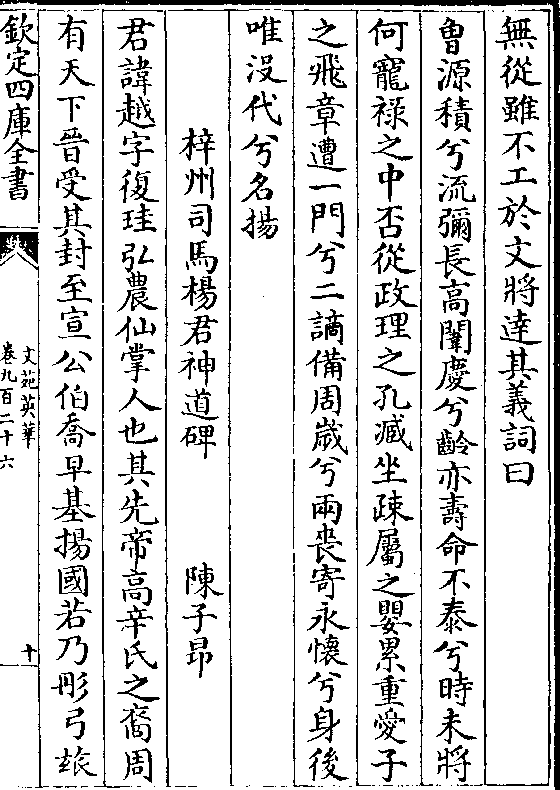 無從雖不工於文將達其義詞曰
魯源積兮流彌長高闈慶兮齡亦壽命不泰兮時未將
何寵禄之中否從政理之孔臧坐疎屬之嬰累重愛子
之飛章遭一門兮二謫備周嵗兮兩喪寄永懷兮身後
唯没代兮名揚
梓州司馬楊君神道碑 陳子昂
君諱越字復珪弘農仙掌人也其先帝高辛氏之裔周
有天下晉受其封至宣公伯喬早基揚國若乃彤弓玈
欽定四庫全書
文苑英華
卷九百二十六
十